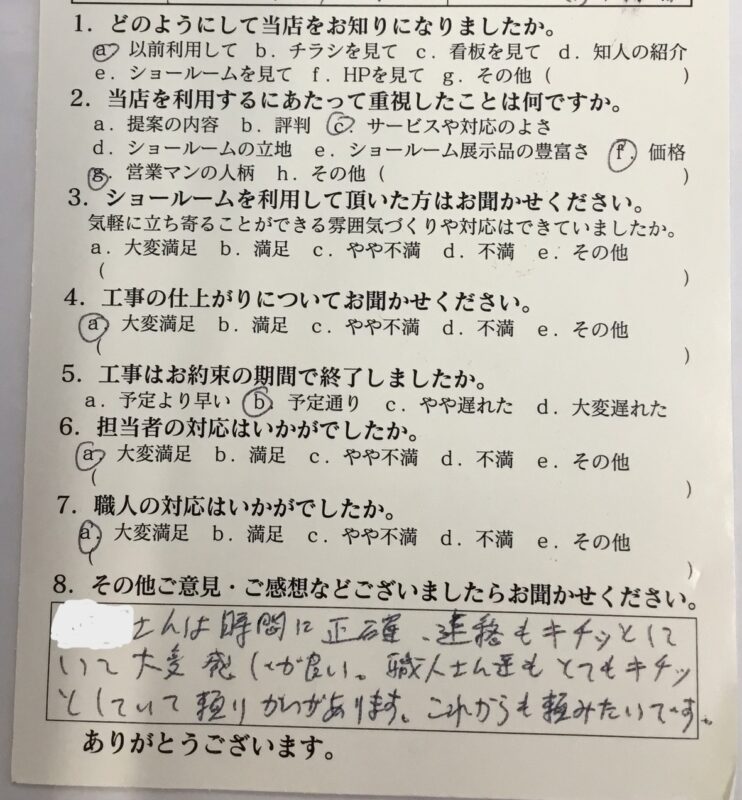 1．どのようにして当店をお知りになりましたか。
a．以前利用して b．チラシを見て c．看板を見て d．知人の紹介
e．ショールームを見て f．HPを見て g．その他（　　　　　　　）
2．当店を利用するにあたって重視したことは何ですか。
a．提案の内容 b．評判 c．サービスや対応のよさ
d．ショールームの立地 e．ショールーム展示品の豊富さ f．価格
g．営業マンの人柄 h．その他（　　　　　　　）
3．ショールームを利用して頂いた方はお聞かせください。
気軽に立ち寄ることができる雰囲気づくりや対応はできていましたか。
a．大変満足 b．満足 c．やや不満 d．不満 e．その他
（　　　　　　　）
4．工事の仕上がりについてお聞かせください。
a．大変満足 b．満足 c．やや不満 d．不満 e．その他
（　　　　　　　）
5．工事はお約束の期間で終了しましたか。
a．予定より早い b．予定通り c．やや遅れた d．大変遅れた
6．担当者の対応はいかがでしたか。
a．大変満足 b．満足 c．やや不満 d．不満 e．その他
（　　　　　　　）
7．職人の対応はいかがでしたか。
a．大変満足 b．満足 c．やや不満 d．不満 e．その他
（　　　　　　　）
8．その他ご意見・ご感想などございましたらお聞かせください。
さんは時間に正確、連絡もキチッとして
いて大変感じが良い。職人さん達もとてもキチッ
としていて頼りがいがあります。これからも頼みたいです。
ありがとうございます。